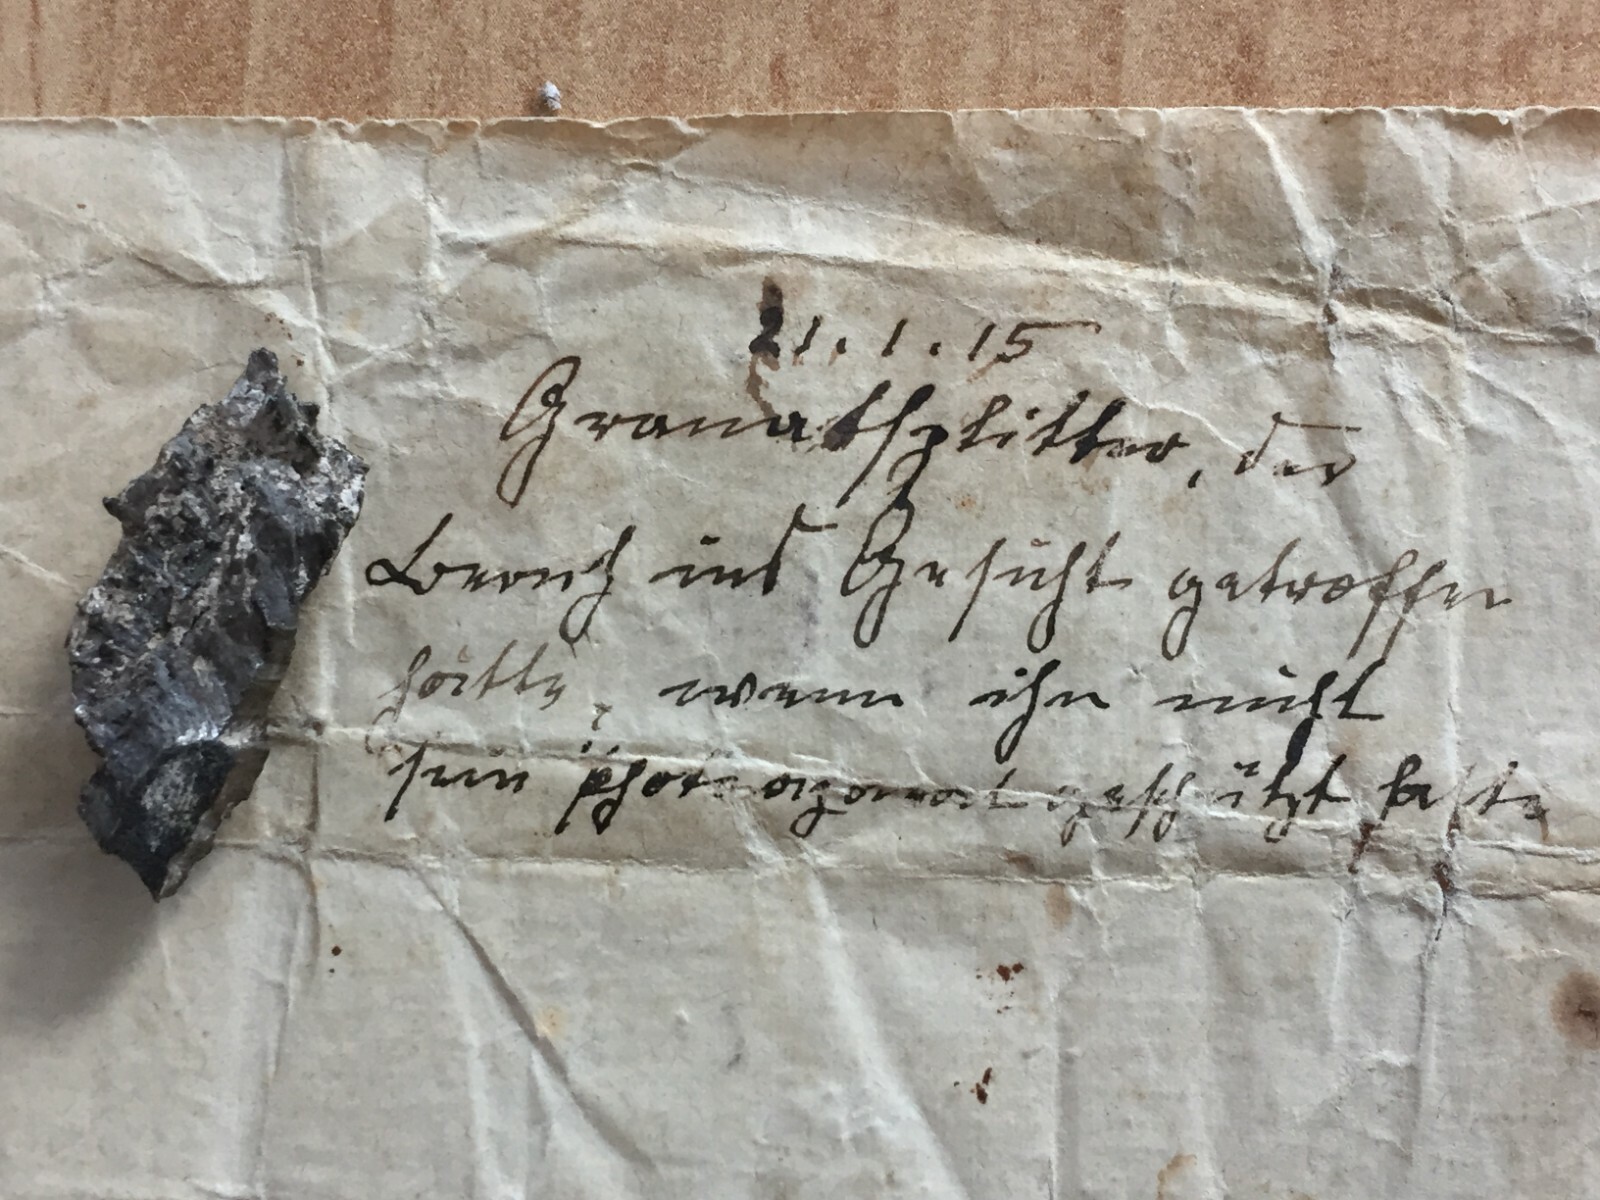 21.1.15
Granatsplitter, der
ins Gesicht getroffen
hätte, wenn ihn nicht
sein photoaparat geschützt hätte